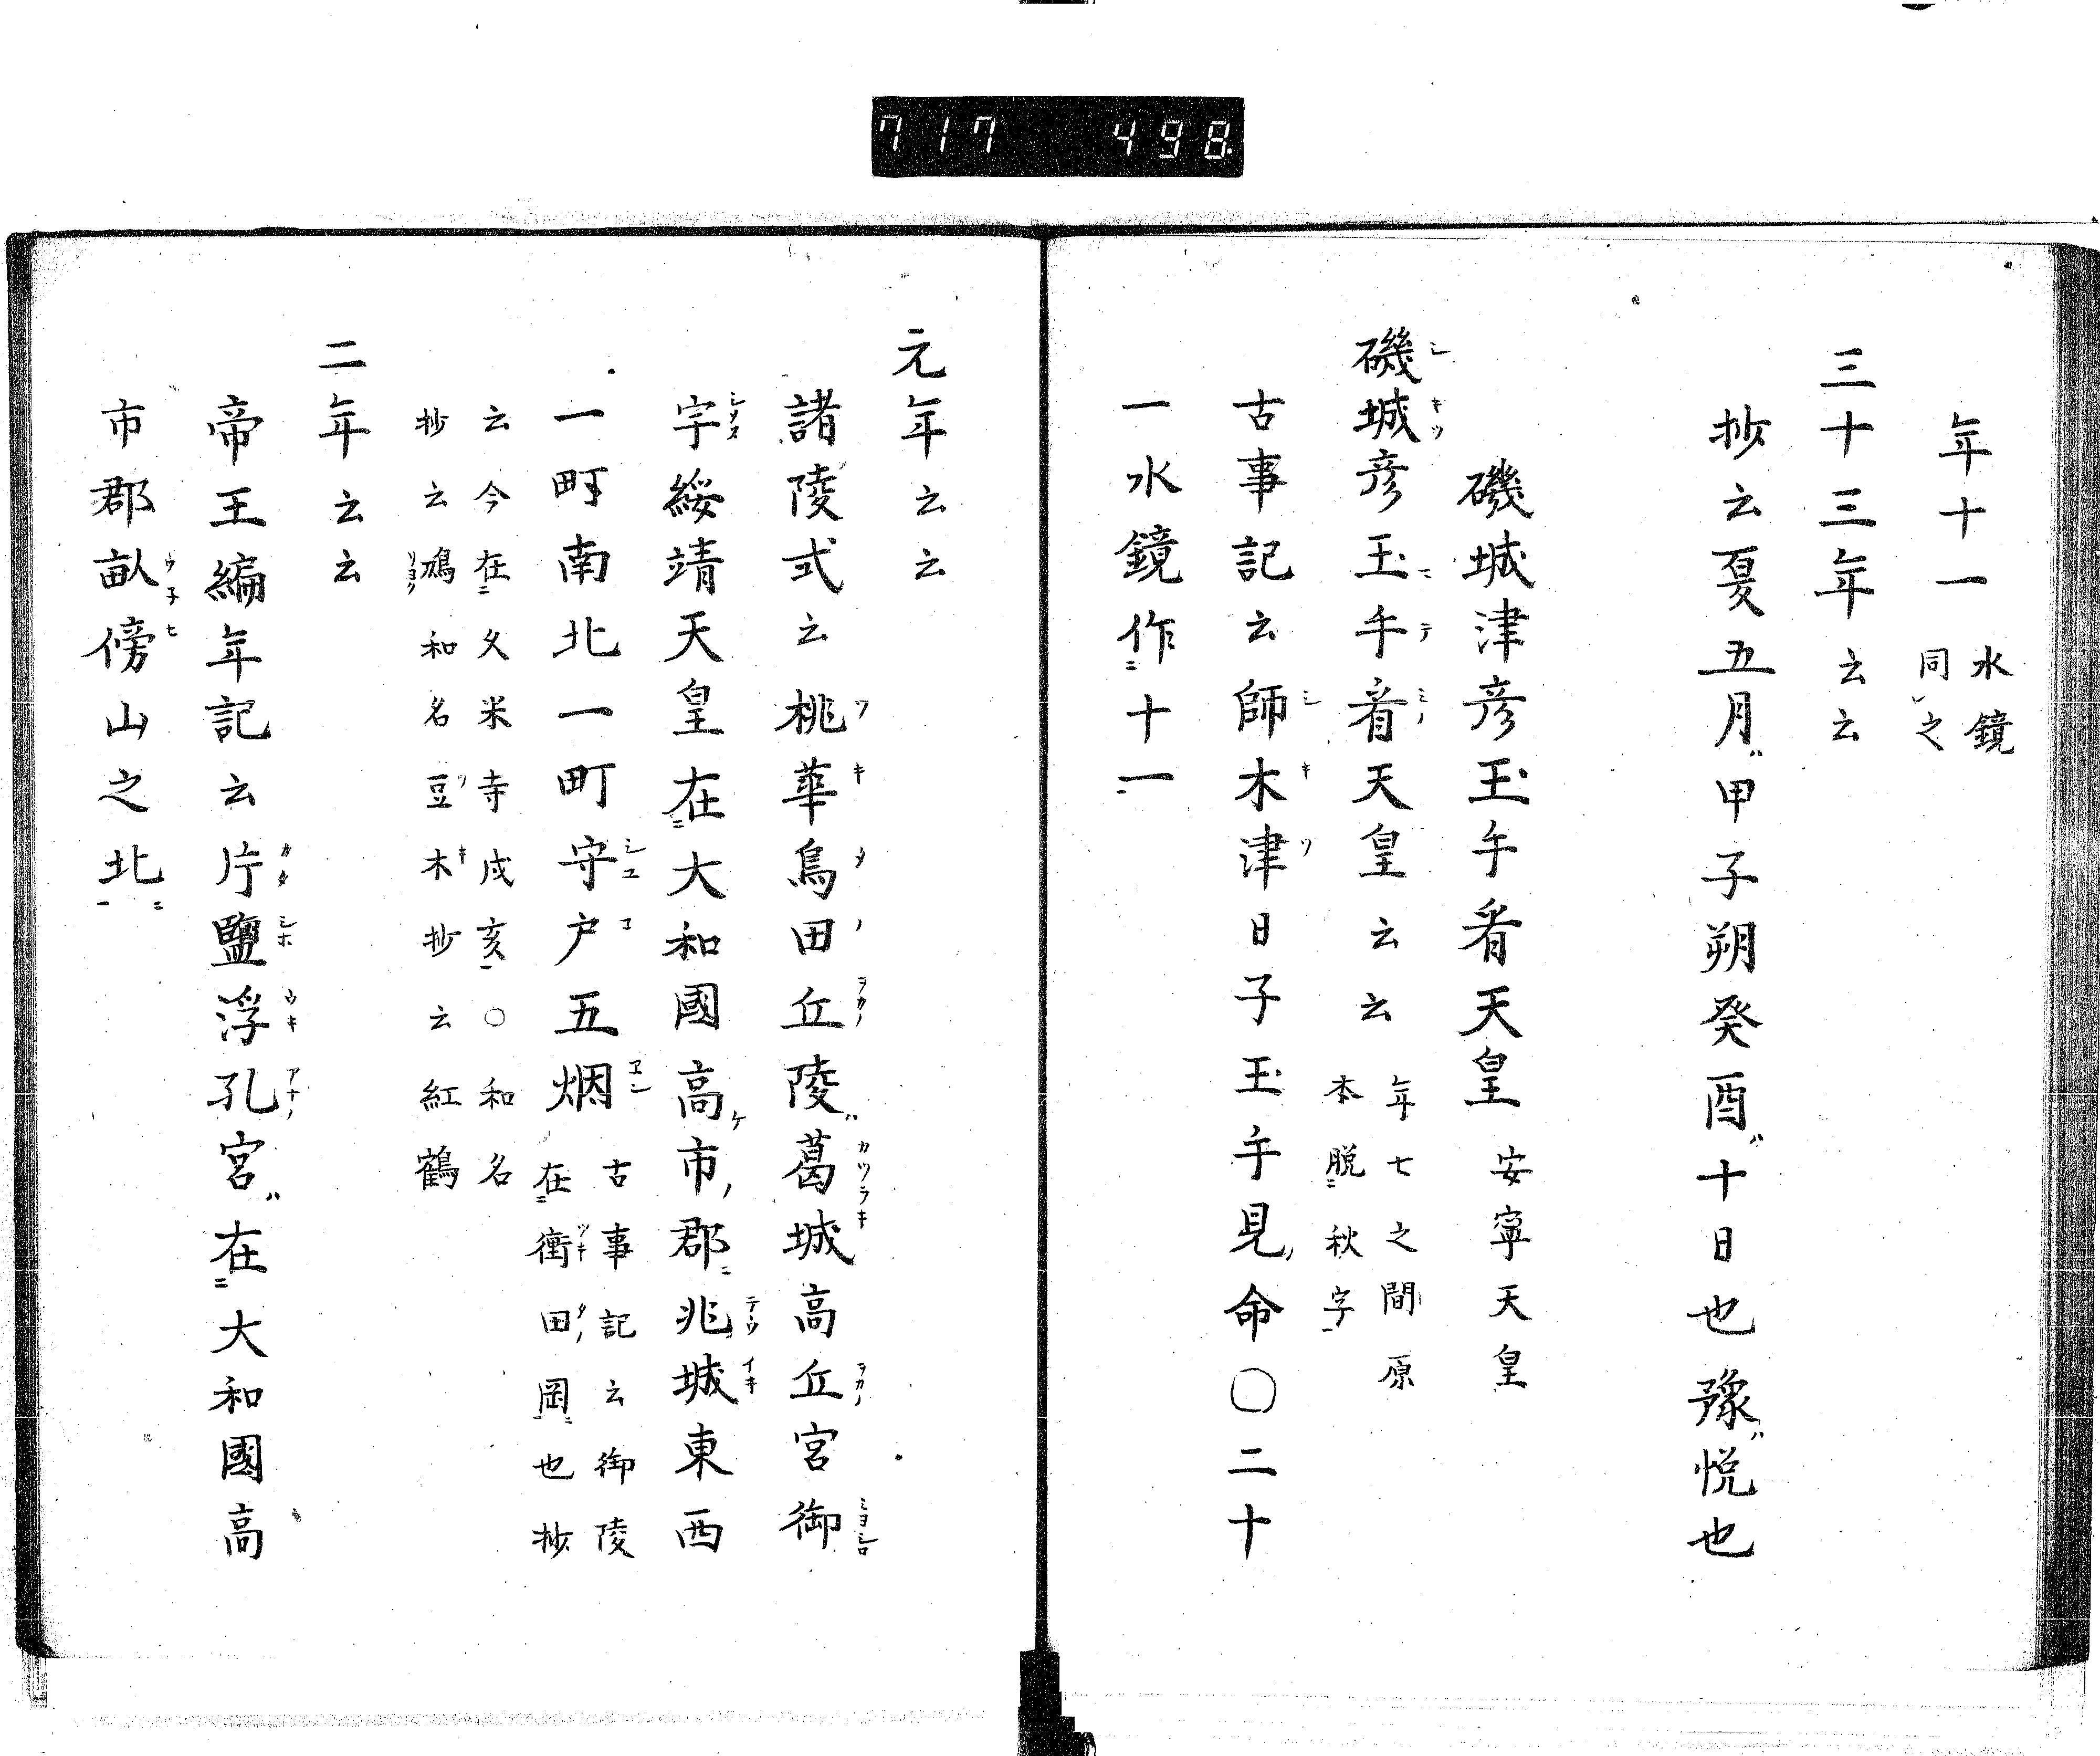 717 498
年十一 水鏡
同之
三十三年云云
抄云夏五月甲子朔癸酉十日也豫悅也
磯城津彦玉手看天皇 安寧天皇
磯城彦玉手看天皇云云 年七之間原
本脱秋字
古事記云師木津日子玉手見命○二十
一水鏡作十一
元年云云
諸陵式云桃華鳥田丘陵葛城高丘宮御
宇綏靖天皇在大和國高市郡兆城東西
一町南北一町守戸五烟 古事記云御陵
在衝田岡也抄
云今在久米寺戌亥○和名
抄云鴋和名豆木抄云紅鶴
二年云云
帝王編年記云片鹽浮孔宮在大和國高
市郡畝傍山之北